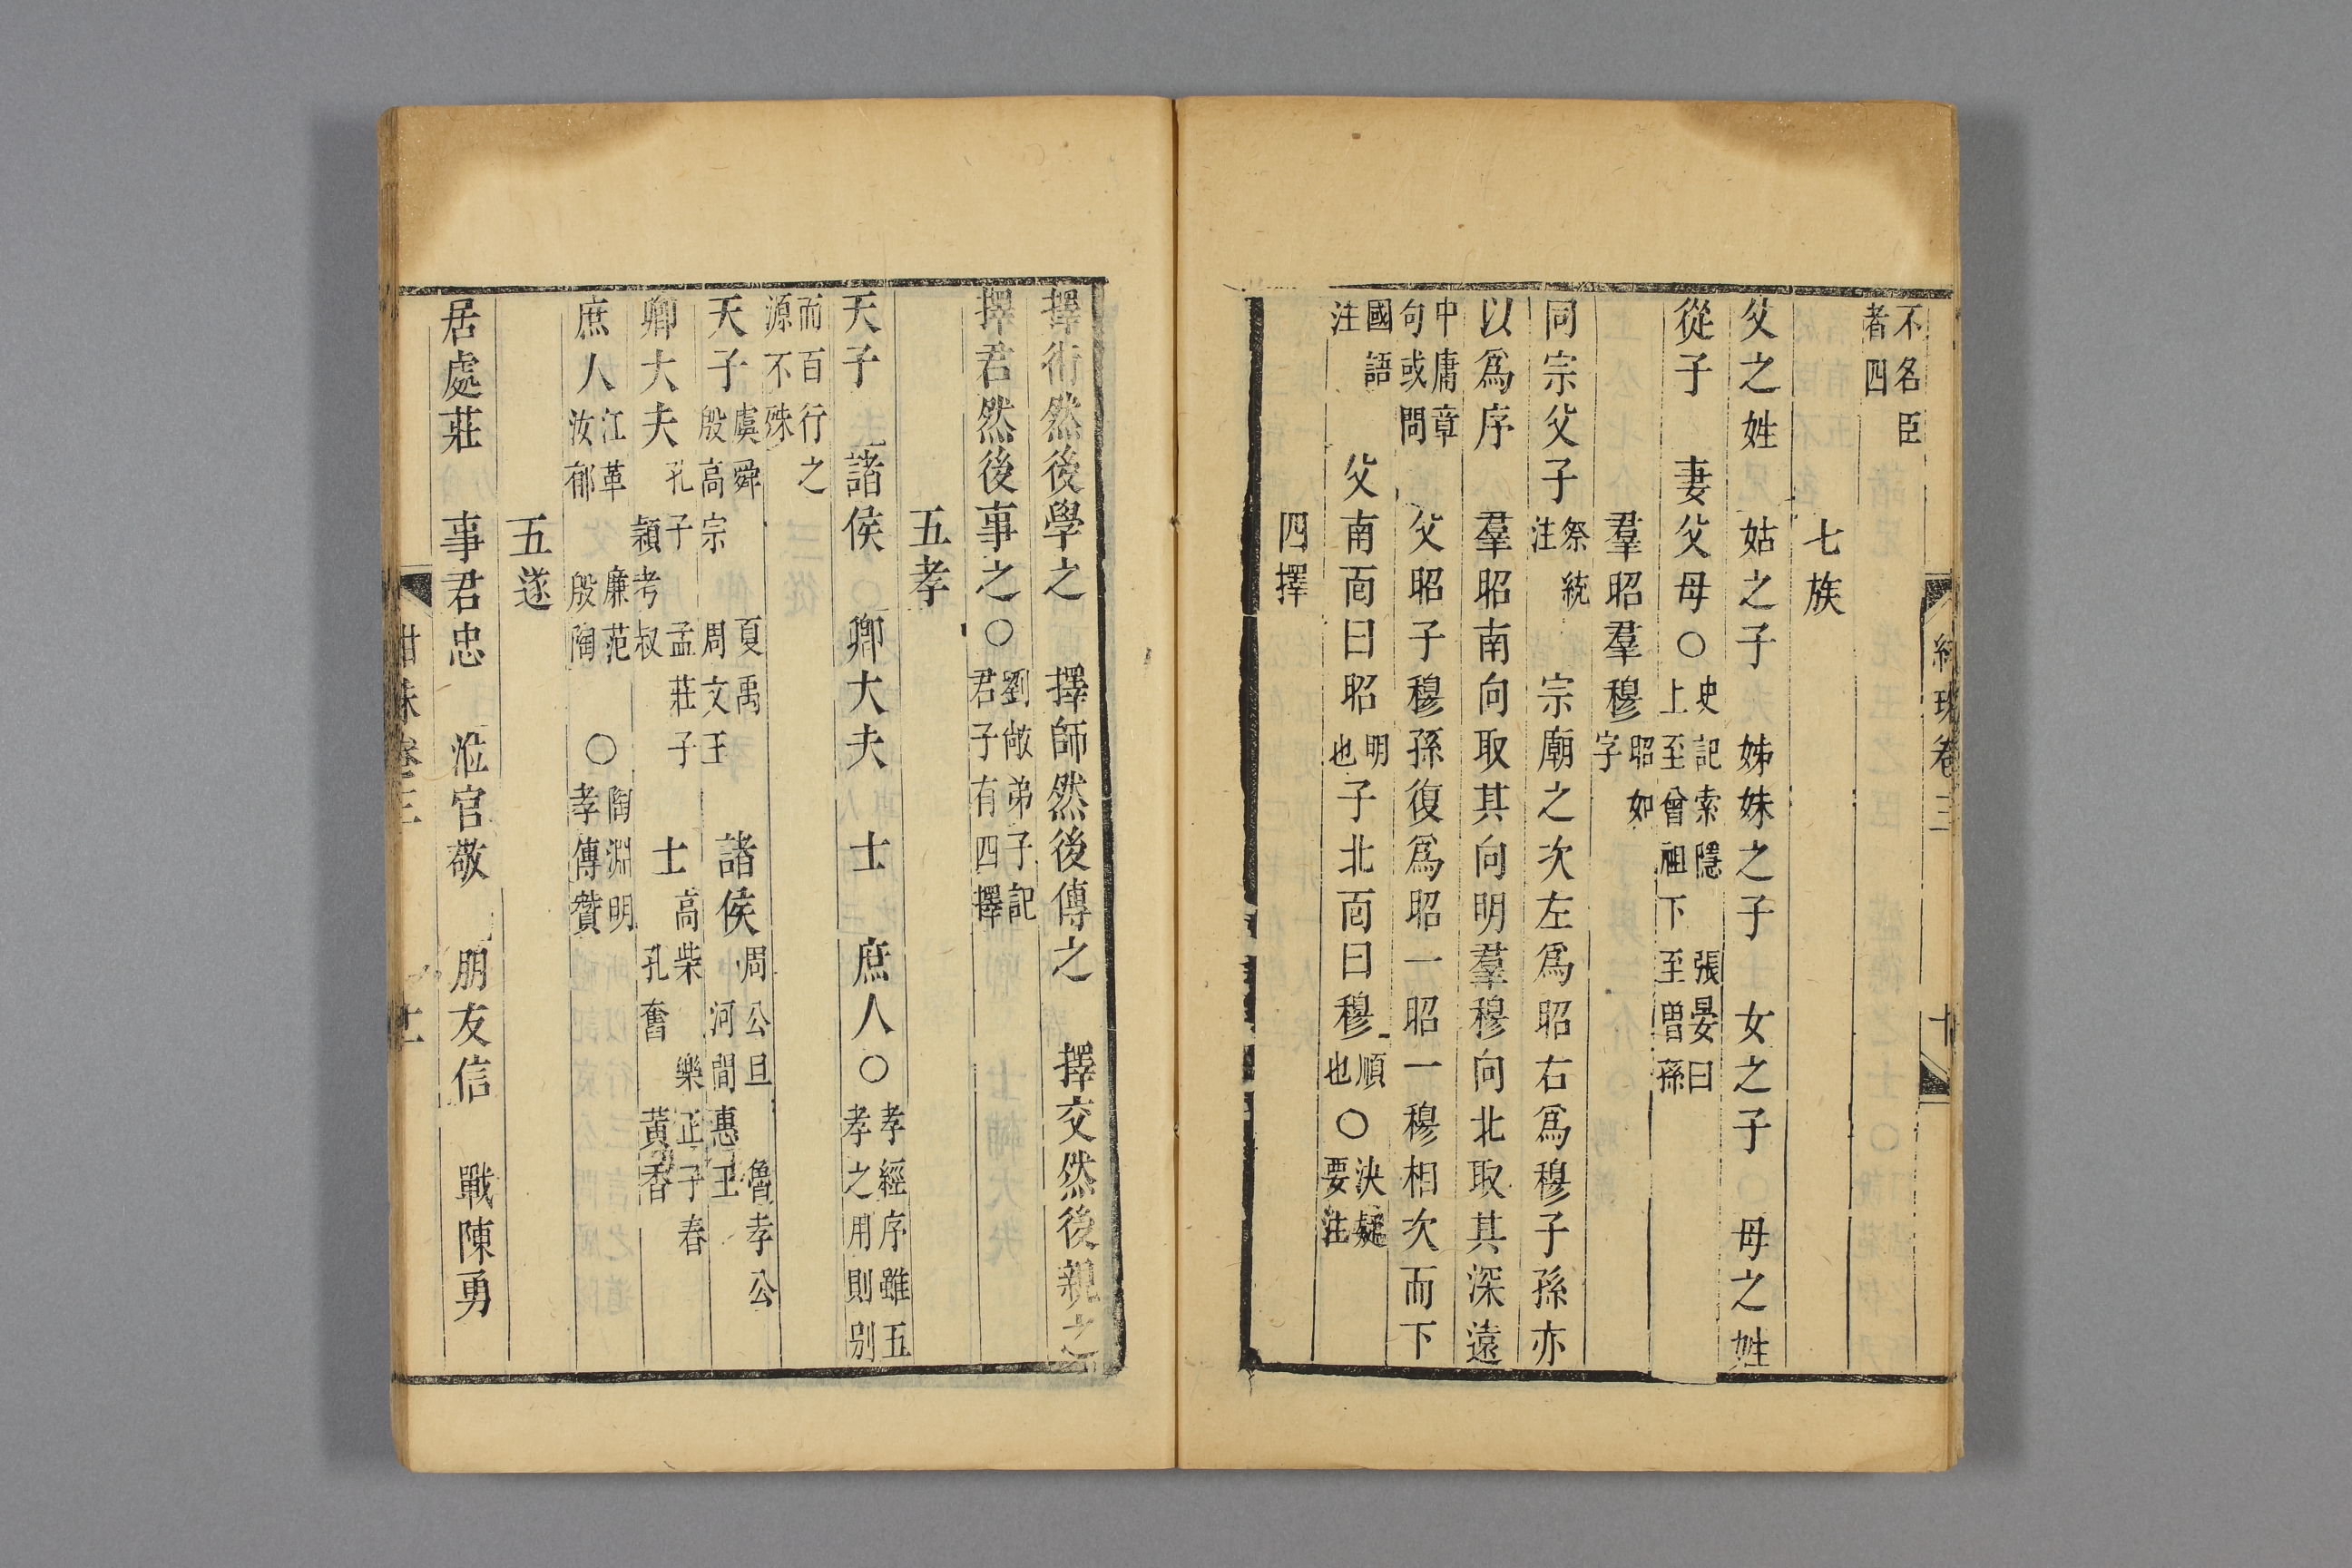 不名臣
者四
七族
父之姓 姑之子 姊妹之子 女之子 母之姓
從子 妻父母○史記索隱 張晏曰
上至曾祖下至曾孫
羣昭羣穆昭如
字
同宗父子祭統
注 宗廟之次左爲昭右爲穆子孫亦
以爲序 羣昭南向取其向明羣穆向北取其深遠
中庸章
句或問 父昭子穆孫復爲昭一昭一穆相次而下
國語
注 父南面曰昭明
也子北面曰穆順
也○決疑
要注
四擇
卷三
十
擇術然後學之 擇師然後傳之 擇交然後親之
擇君然後事之○劉敞弟子記
君子有四擇
五孝
天子 諸侯 卿大夫 士 庶人○孝經序雖五
孝之用則别
而百行之
源不殊
天子虞舜 夏禹
殷高宗 周文王 諸侯周公旦 魯孝公
河間惠王
卿大夫孔子 孟莊子
潁考叔 士高柴 樂正子春
孔奮 黃香
庶人江革 廉范
汝郁 殷陶 ○陶淵明
孝傳贊
五遂
居處莊 事君忠 涖官敬 朋友信 戰陳勇